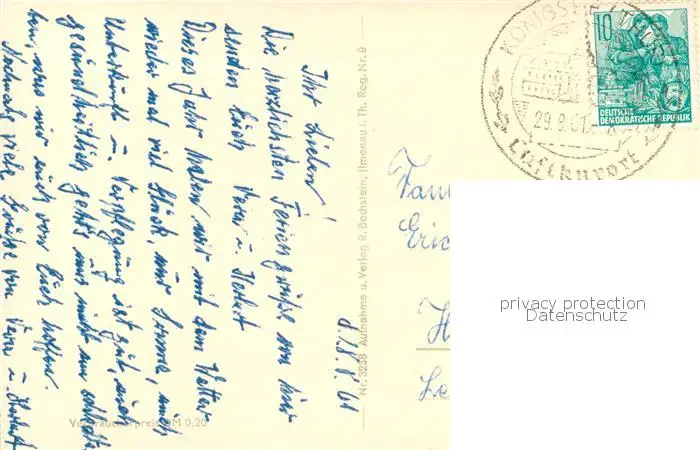 d. 28.8.61
Ihr Lieben!
Die herzlichsten Feriengrüße von hier
senden Euch Vera u. Herbert
Dieses Jahr haben wir mit dem Wetter
wieder mal viel Glück, nur Sonne, auch
Unterkunft u. Verpflegung ist gut, auch
gesundheitlich geht's uns nicht schlecht
ten, was wir auch von Euch hoffen.
Nochmals viele Grüße von Vera u. Herbert
Verbraucherpreis DM 0,20
Nr. 3238 Aufnahme u. Verlag R. Bechstein, Ilmenau i. Th. Reg. Nr. 9
KÖNIGSEE (THÜR.)
29.8.61
Luftkurort
10
DEUTSCHE
DEMOKRATISCHE REPUBLIK
Fam
Eric
H
Le
privacy protection
Datenschutz